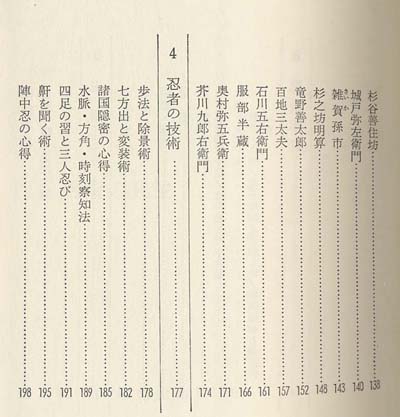 杉谷善住坊……138
城戸弥左衛門……140
雑賀孫市……143
さいか
杉之坊明算……148
竜野善太郎……152
百地三太夫……157
石川五右衛門……161
服部半蔵……166
奥村弥五兵衛……171
芥川九郎右衛門……174
4 忍者の技術……177
歩法と除景術……178
七方出と変装術……182
諸国隠密の心得……185
水脈・方角・時刻察知法……189
四足の習と三人忍び……191
鼾を聞く術……195
陣中忍の心得……198